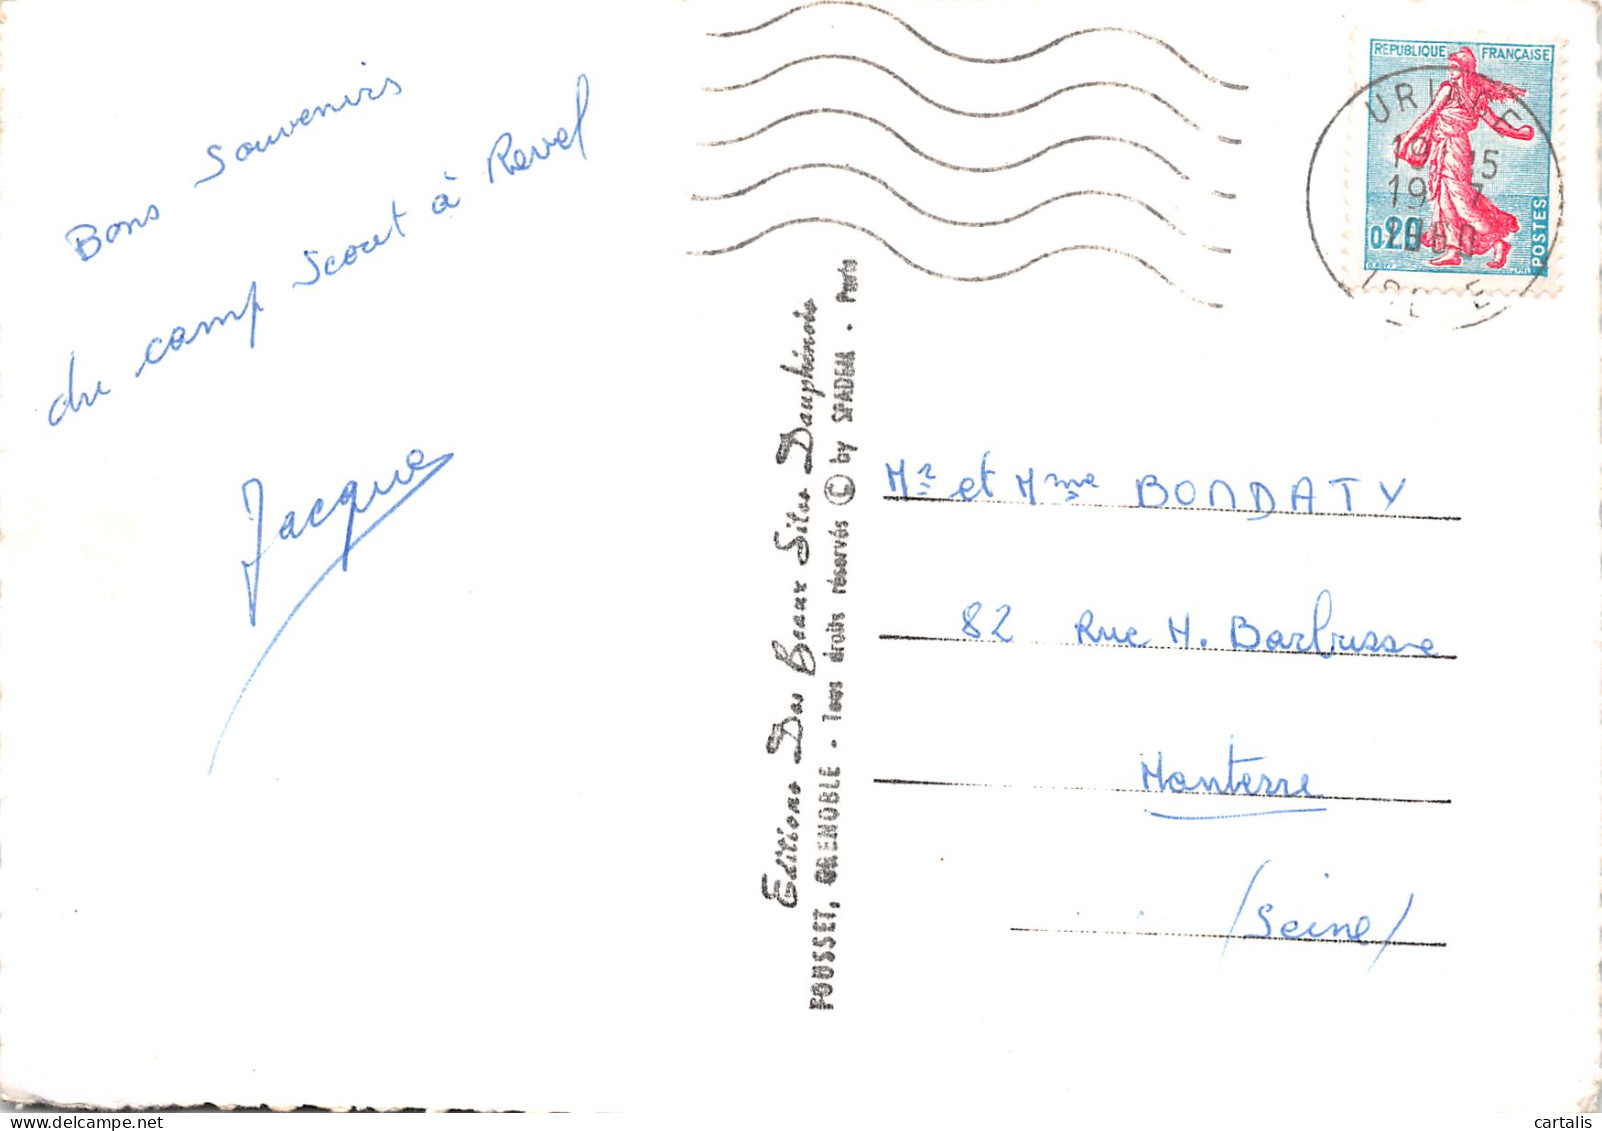 Bons Souvenirs
du camp Scout à Revel
Jacques
REPUBLIQUE FRANÇAISE
0.20
POSTES
URIAGE
19 15
19 7
1960
ISERE
Mr et Mme BONDATY
82 Rue H. Barbusse
Nanterre
(Seine)
Editions Des Beaux Sites Dauphinois
POUSSET, GRENOBLE - Tous droits réservés © by SPADEM - Paris
cartalis
www.delcampe.net